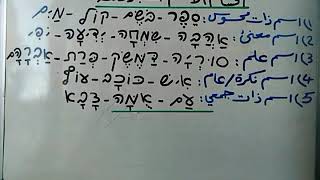 1) اسم ذات محسوس: סֵפֶר - בֹּשֶׂם - קוֹל - מַיִם
2) اسم معنى: אַהֲבָה - שִׂמְחָה - יְדִיעָה - יֹפִי
3) اسم علم: סוּרְיָה - דַּמֶּשֶׂק - פְּרָת - אַבְרָהָם
4) اسم نكرة/عام: אִישׁ - כּוֹכָב - עוֹף
5) اسم ذات جمعي: עַם - אֻמָּה - צָבָא